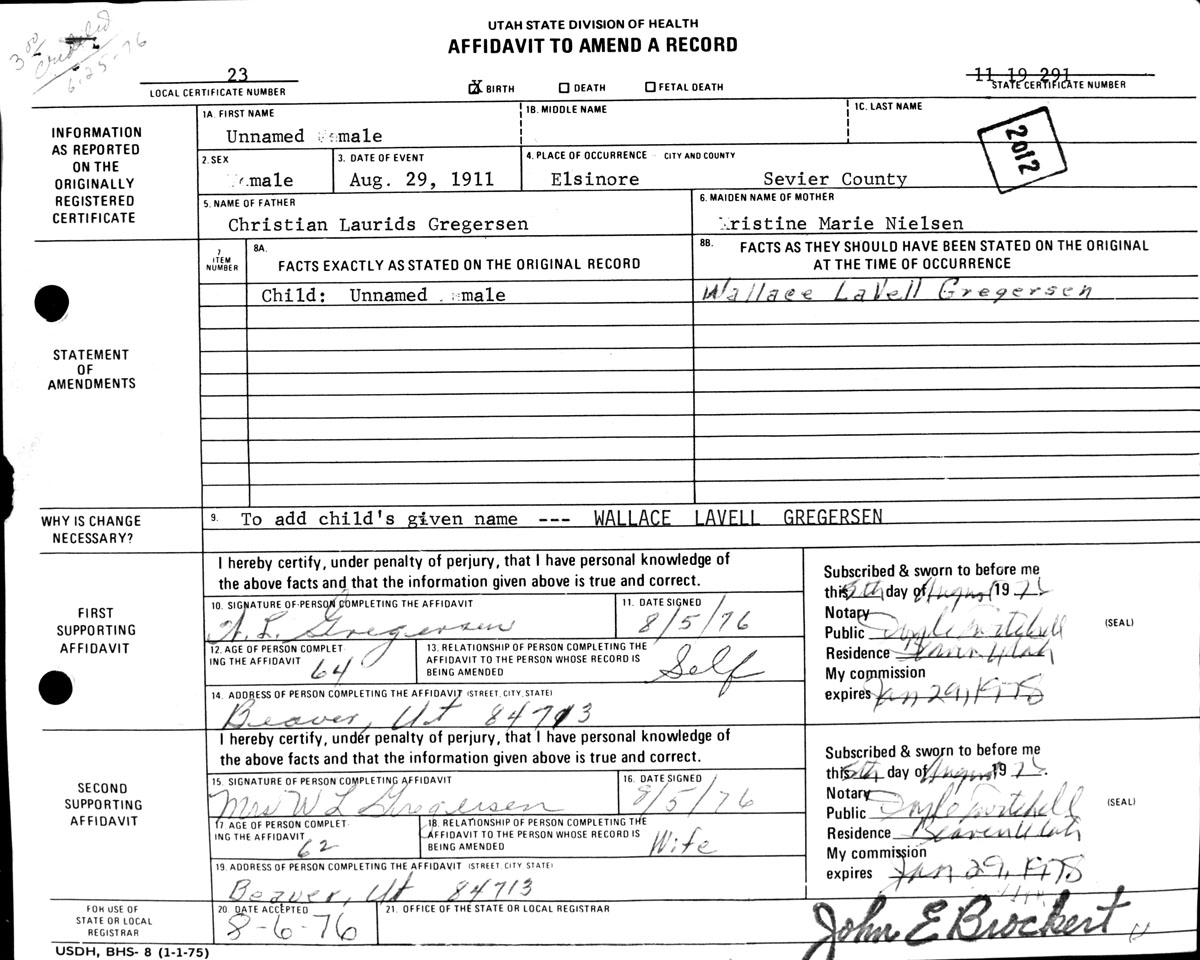 UTAH STATE DIVISION OF HEALTH
AFFIDAVIT TO AMEND A RECORD
3.00
6-25-76
23
LOCAL CERTIFICATE NUMBER
X BIRTH
DEATH
FETAL DEATH
11 19 291
STATE CERTIFICATE NUMBER
2012
INFORMATION
AS REPORTED
ON THE
ORIGINALLY
REGISTERED
CERTIFICATE
1A. FIRST NAME
Unnamed male
1B. MIDDLE NAME
1C. LAST NAME
2. SEX
male
3. DATE OF EVENT
Aug. 29, 1911
4. PLACE OF OCCURRENCE - CITY AND COUNTY
Elsinore Sevier County
5. NAME OF FATHER
Christian Laurids Gregersen
6. MAIDEN NAME OF MOTHER
Kristine Marie Nielsen
STATEMENT
OF
AMENDMENTS
7
ITEM
NUMBER
8A.
FACTS EXACTLY AS STATED ON THE ORIGINAL RECORD
8B. FACTS AS THEY SHOULD HAVE BEEN STATED ON THE ORIGINAL
AT THE TIME OF OCCURRENCE
Child: Unnamed male
Wallace LaVell Gregersen
WHY IS CHANGE
NECESSARY?
9. To add child's given name --- WALLACE LAVELL GREGERSEN
FIRST
SUPPORTING
AFFIDAVIT
I hereby certify, under penalty of perjury, that I have personal knowledge of
the above facts and that the information given above is true and correct.
10. SIGNATURE OF PERSON COMPLETING THE AFFIDAVIT
W. L. Gregersen
11. DATE SIGNED
8/5/76
12. AGE OF PERSON COMPLET-
ING THE AFFIDAVIT
64
13. RELATIONSHIP OF PERSON COMPLETING THE
AFFIDAVIT TO THE PERSON WHOSE RECORD IS
BEING AMENDED
Self
14. ADDRESS OF PERSON COMPLETING THE AFFIDAVIT (STREET, CITY, STATE)
Beaver, Ut 84713
Subscribed & sworn to before me
this 5th day of August 1976
Notary
Public
Residence Beaver Utah
My commission
expires Jan 29, 1978
(SEAL)
SECOND
SUPPORTING
AFFIDAVIT
I hereby certify, under penalty of perjury, that I have personal knowledge of
the above facts and that the information given above is true and correct.
15. SIGNATURE OF PERSON COMPLETING AFFIDAVIT
Mrs W L Gregersen
16. DATE SIGNED
8/5/76
17. AGE OF PERSON COMPLET-
ING THE AFFIDAVIT
62
18. RELATIONSHIP OF PERSON COMPLETING THE
AFFIDAVIT TO THE PERSON WHOSE RECORD IS
BEING AMENDED
Wife
19. ADDRESS OF PERSON COMPLETING THE AFFIDAVIT (STREET, CITY, STATE)
Beaver, Ut 84713
Subscribed & sworn to before me
this 5th day of August 1976.
Notary
Public
Residence Beaver Utah
My commission
expires Jan 29, 1978
(SEAL)
FOR USE OF
STATE OR LOCAL
REGISTRAR
20. DATE ACCEPTED
8-6-76
21. OFFICE OF THE STATE OR LOCAL REGISTRAR
John E Brockert
USDH, BHS- 8 (1-1-75)